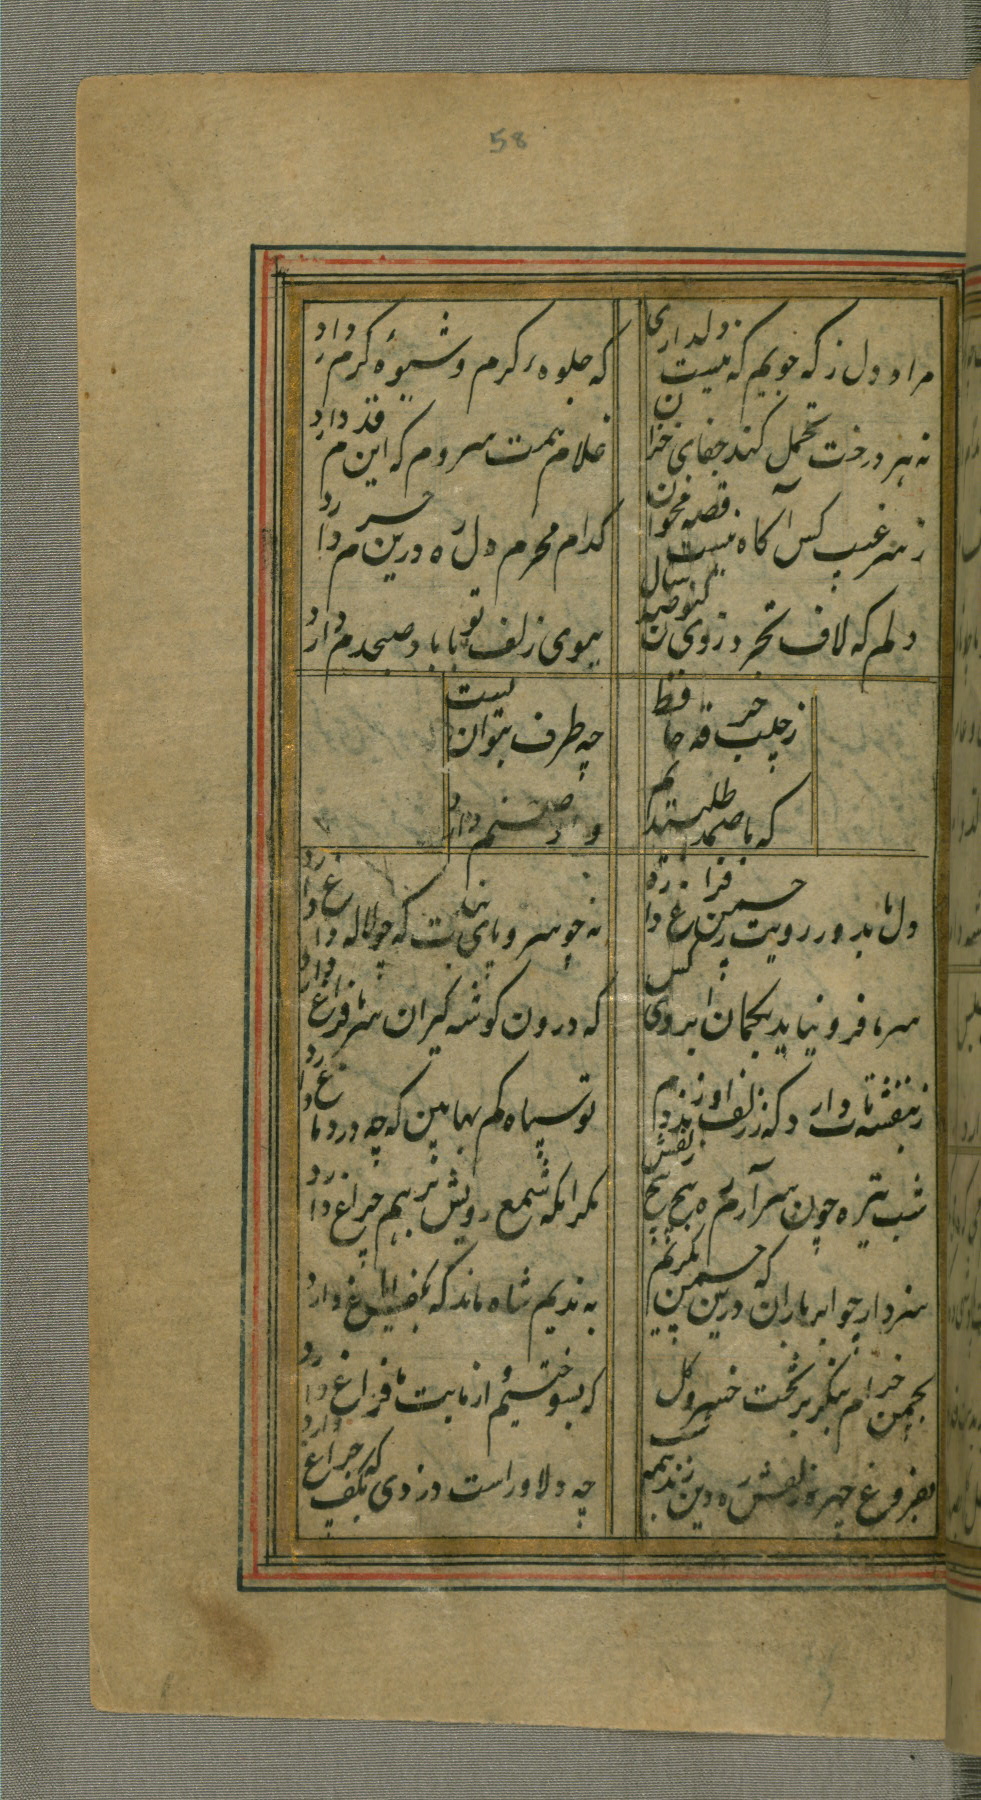 58
مراد دل ز که جویم که نیست دلداری
که جلوه کرم و شیوه کرم دارد
نه هر درخت تحمل کند جفای خزان
غلام همت سروم که این قدم دارد
ز سر غیب کس آکاه نیست قصه مخوان
کدام محرم دل ره درین حرم دارد
دلم که لاف تجرد زدی کنون صد
ببوی زلف تو با باد صبحدم دارد
ز جیب خرقه حافظ
چه طرف بتوان بست
که ما صمد طلبیدیم
و او صنم دارد
دل ما بدور رویت ز چمن فراغ دارد
که چو سرو پای بند است که چو لاله داغ دارد
سر ما فرو نیاید بکمان ابروی کس
که درون کوشه کیران ز فراغ دارد
ز بنفشه تاب دارم که ز زلف او زند دم
تو سیاه کم بها بین که چه در دماغ دارد
شب تیره چون سر آرم ره پیچ پیچ زلفش
مکر آنکه شمع رویش برهم چراغ دارد
سزد ار چو ابر باران که درین چمن بکریم
به ندیم شاه ماند که بکف ایاغ دارد
بچمن خرام بنکر بر تخت خسرو کل
که بسوختیم و از ما بت ما فراغ دارد
بفروغ چهره زلفش ره دین زند همه شب
چه دلاور است دزدی که بکف چراغ دارد